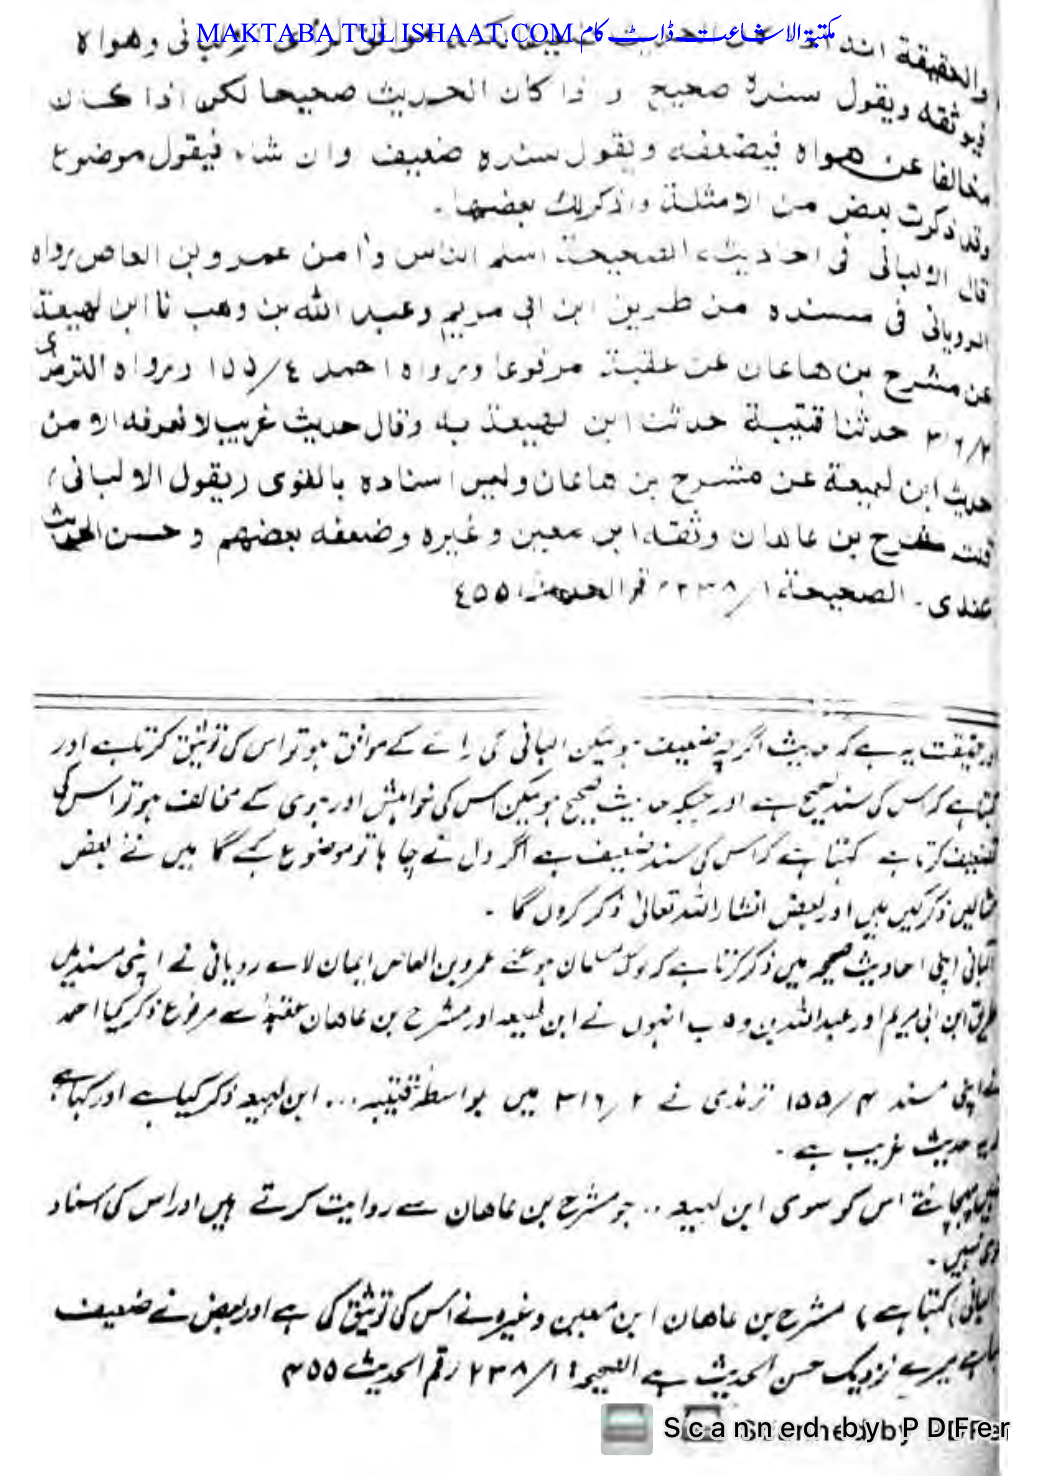 MAKTABA TUL ISHAAT.COM مکتبۃ الاشاعت ڈاٹ کام
والحقيقة لرأى الألبانى وهواه
فيوثقه ويقول سنده صحيح و اذا كان الحديث صحيحا لكن اذا كان
مخالفا عن هواه فيضعفه ويقول سنده ضعيف وان شاء فيقول موضوع
وقد ذكرت بعض من الامثلة واذكر لك بعضها۔
قال الالبانى فى احاديثه الصحيحة اسلم الناس وآمن عمرو بن العاص رواه
الرويانى فى مسنده من طريق ابن ابى مريم وعبد الله بن وهب نا ابن لهيعة
عن مشرح بن هاعان عن عقبة مرفوعا ورواه احمد ٤/١٥٥ ورواه الترمذى
٢/٣١٦ حدثنا قتيبة حدثنا ابن لهيعة به وقال حديث غريب لا نعرفه الا من
حديث ابن لهيعة عن مشرح بن هاعان وليس اسناده بالقوى (يقول الالبانى)
قلت مشرح بن عاهان وثقه ابن معين وغيره وضعفه بعضهم و حسن الحديث
عندى۔ الصحيحة ١/٢٣٨ رقم الحديث ٤٥٥
اور حقیقت یہ ہے کہ حدیث اگرچہ ضعیف ہو لیکن البانی کی رائے کے موافق ہو تو اس کی توثیق کرتا ہے اور
کہتا ہے کہ اس کی سند صحیح ہے اور جبکہ حدیث صحیح ہو لیکن اس کی خواہش اور ہوی کے مخالف ہو تو اس کی
تضعیف کرتا ہے کہتا ہے کہ اس کی سند ضعیف ہے اگر دل نے چاہا تو موضوع کہے گا میں نے بعض
مثالیں ذکر کیں ہیں اور بعض انشاء اللہ تعالیٰ ذکر کروں گا ۔
البانی اپنی احادیث صحیحہ میں ذکر کرتا ہے کہ لوگ مسلمان ہو گئے عمرو بن العاص ایمان لائے رویانی نے اپنی مسند میں
طریق ابن ابی مریم اور عبداللہ بن وہب انہوں نے ابن لہیعہ اور مشرح بن عاھان عقبہؓ سے مرفوع ذکر کیا احمد
نے اپنی مسند ۴/۱۵۵ ترمذی نے ۲/۳۱۶ میں بواسطہ قتیبہ ... ابن لہیعہ ذکر کیا ہے اور کہا ہے
کہ یہ حدیث غریب ہے ۔
نہیں پہچانتے اس کو سوی ابن لہیعہ .. جو مشرح بن عاھان سے روایت کرتے ہیں اور اس کی اسناد
قوی نہیں ۔
البانی (کہتا ہے) مشرح بن عاھان ابن معین وغیرہ نے اس کی توثیق کی ہے اور بعض نے ضعیف
کہا ہے میرے نزدیک حسن الحدیث ہے الصحیحہ ۱/۲۳۸ رقم الحدیث ۴۵۵
Scanned by PDFer